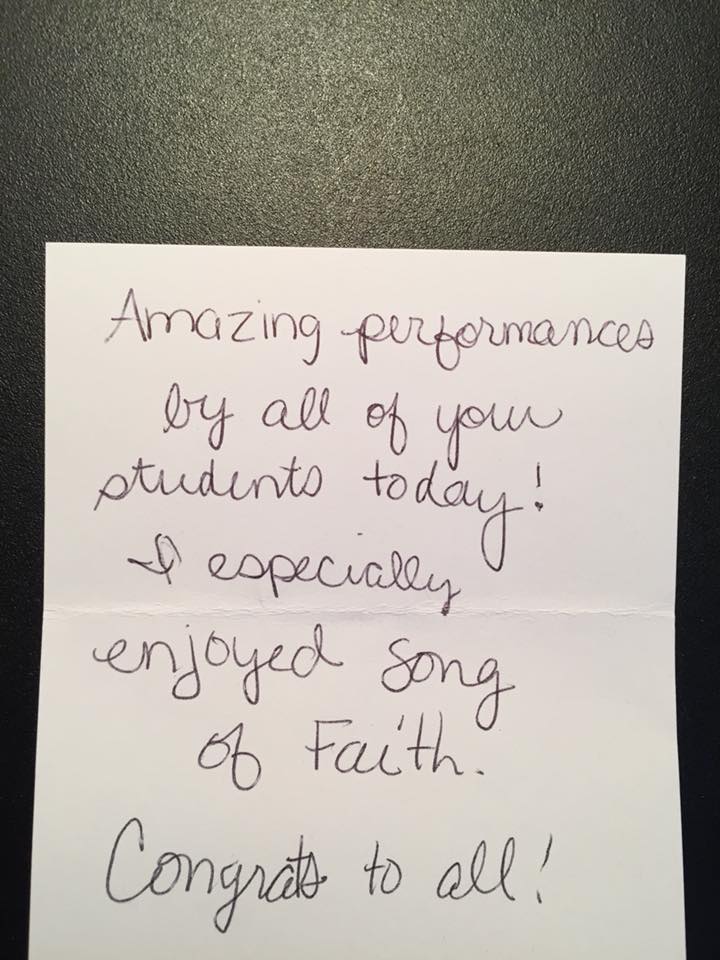 Amazing performances
by all of your
students today!
I especially
enjoyed Song
of Faith.
Congrats to all!